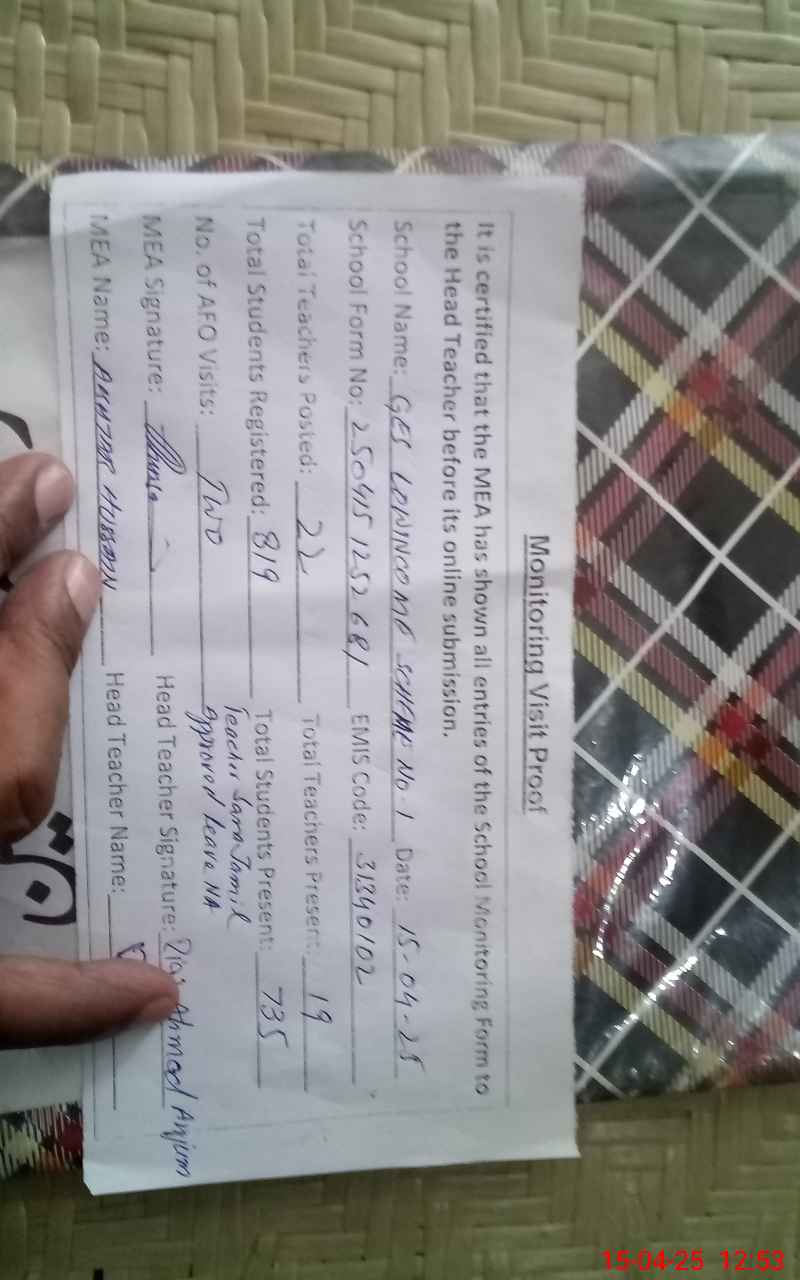 Monitoring Visit Proof
It is certified that the MEA has shown all entries of the School Monitoring Form to
the Head Teacher before its online submission.
School Name: GES LOWINCOME SCHEME No-1 Date: 15-04-25
School Form No: 250415 1252681 EMIS Code: 31340102
Total Teachers Posted: 22 Total Teachers Present: 19
Total Students Registered: 819 Total Students Present: 735
Teacher Sara Jamil
No. of AEO Visits: TWO Approved Leave NA
MEA Signature: Head Teacher Signature: Ahmad Anjum
MEA Name: HUSSAIN Head Teacher Name:
15-04-25 12:53